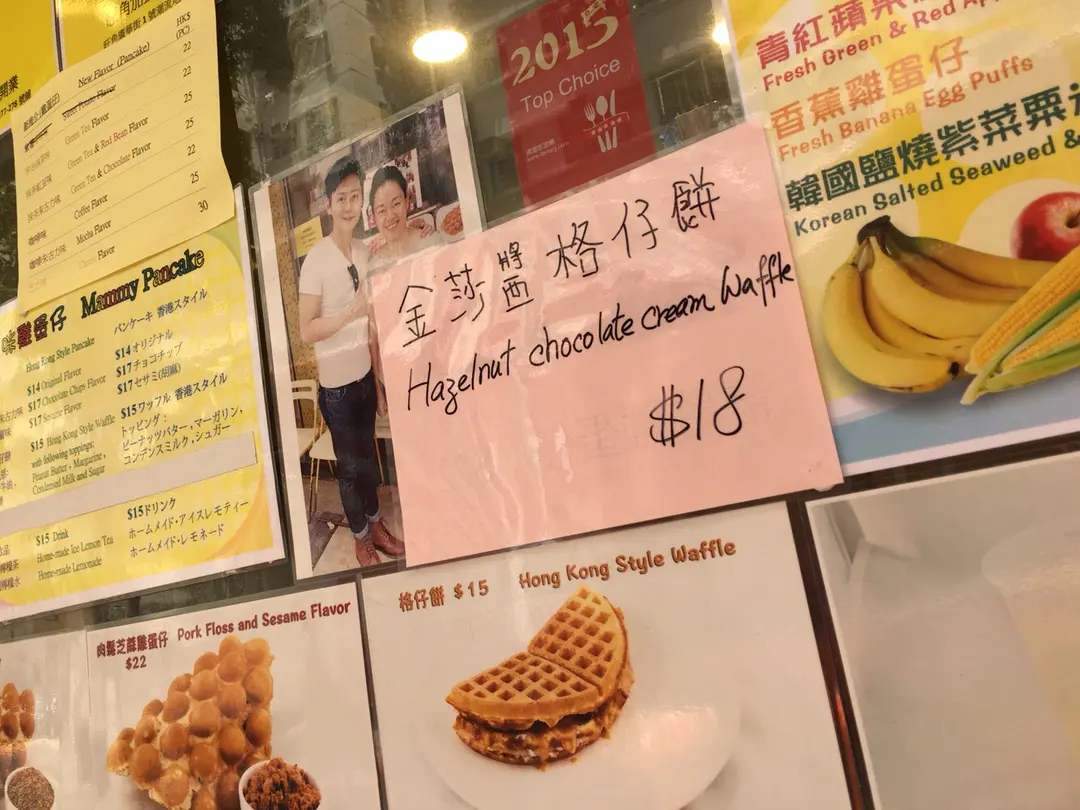 HK$
(PC)
New Flavor (Pancake)
Sweet Potato Flavor
22
Green Tea Flavor
22
Green Tea & Red Bean Flavor
25
Green Tea & Chocolate Flavor
25
咖啡味 Coffee Flavor
22
Mocha Flavor
25
Cheese Flavor
30
雞蛋仔 Mammy Pancake
Hong Kong Style Pancake
$14 Original Flavor
$17 Chocolate Chips Flavor
$17 Sesame Flavor
$15 Hong Kong Style Waffle
with following toppings:
Peanut Butter, Margarine,
Condensed Milk and Sugar
$15 Drink
Home-made Ice Lemon Tea
Home-made Lemonade
パンケーキ 香港スタイル
$14オリジナル
$17チョコチップ
$17セサミ(胡麻)
$15ワッフル 香港スタイル
トッピング:
ピーナッツバター,マーガリン,
コンデンスミルク,シュガー
$15ドリンク
ホームメイド・アイスレモティー
ホームメイド・レモネード
2015
Top Choice
金莎醬格仔餅
Hazelnut chocolate cream Waffle
$18
青紅蘋果
Fresh Green & Red
香蕉雞蛋仔
Fresh Banana Egg Puffs
韓國鹽燒紫菜粟
Korean Salted Seaweed &
肉鬆芝蔴雞蛋仔 Pork Floss and Sesame Flavor
$22
格仔餅 $15 Hong Kong Style Waffle